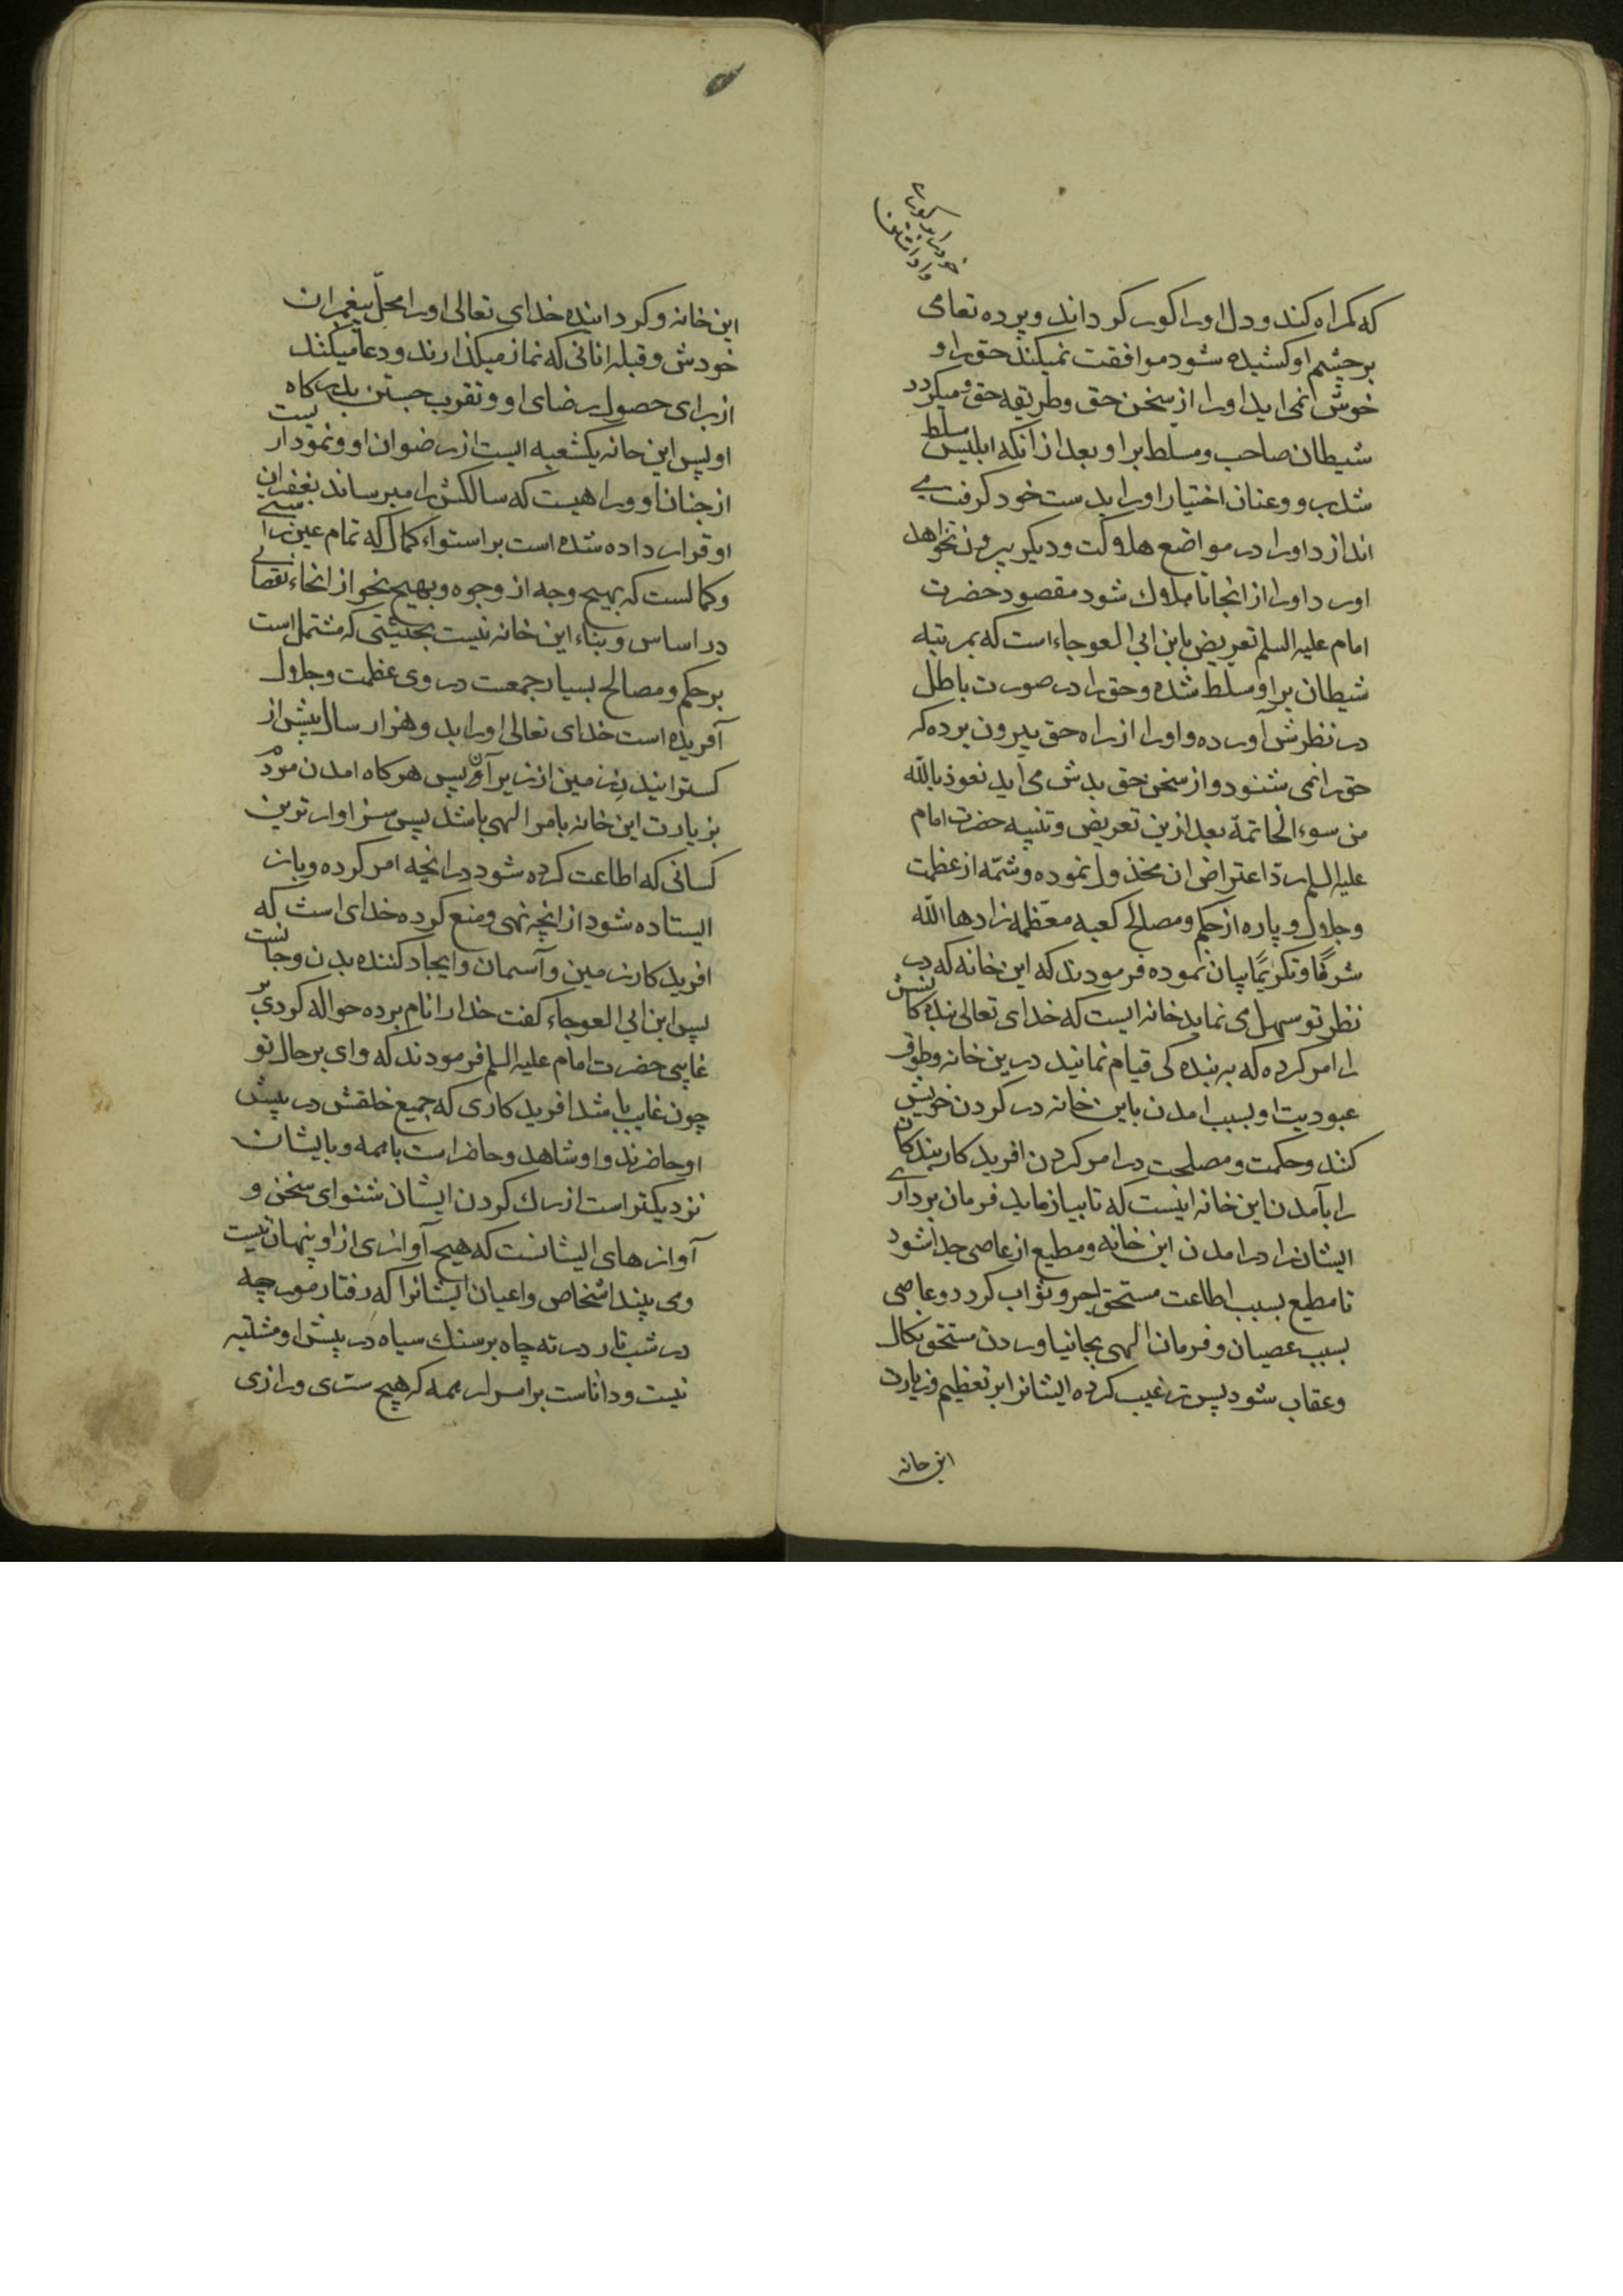 خود را بکوری
وا داشتن
که کمراه کند و دل او را کور کرداند و پرده تعامی
بر چشم او کشیده شود موافقت نمیکند حق را و
خوش نمی اید او را از سخن حق و طریقه حق و میکردد
شیطان صاحب و مسلط بر او و بعد از انکه ابلیس مسلط
شد بر و و عنان اختیار او را بدست خود کرفت می
اندازد او را در مواضع هلاکت و دیکر بیرون نخواهد
اورد او را از انجا تا هلاک شود مقصود حضرت
امام علیه السلم تعریض بابن ابی العوجاء است که بمرتبه
شیطان بر او مسلط شده و حق را در صورت باطل
در نظرش آورده و او را از راه حق بیرون برده که
حق را نمی شنود و از سخن حق بدش می آید نعوذ بالله
من سوء الخاتمة بعد ازین تعریض و تنبیه حضرت امام
علیه السلم ردّ اعتراض ان مخذول نموده و شمّه از عظمت
و جلال و پاره از حکم و مصالح کعبه معظّمه زادها الله
شرفًا و تکریمًا بیان نموده فرمودند که این خانه که در
نظر تو سهل می نماید خانه ایست که خدای تعالی بندکانش
را امر کرده که به بنده کی قیام نمایند درین خانه و طوق
عبودیت او بسبب امدن باین خانه در کردن خویش
کنند و حکمت و مصلحت در امر کردن افریدکار بندکان
را بآمدن این خانه اینست که تا بیازماید فرمان برداری
ایشان را در امدن این خانه و مطیع از عاصی جدا شود
تا مطیع بسبب اطاعت مستحق اجر و ثواب کردد و عاصی
بسبب عصیان و فرمان الهی بجا نیاوردن مستحق نکال
و عقاب شود پس ترغیب کرده ایشانرا بر تعظیم و زیارت
این خانه
این خانه و کرداننده خدای تعالی او را محلّ پیغمبران
خودش و قبله انانی که نماز میکذارند و دعا میکنند
از برای حصول رضای او و تقرب جستن بدرکاه
او پس این خانه یکشعبه ایست از رضوان او و نمودار یست
از جنان او و راهیست که سالکش را میرساند بغفران
او قرار داده شده است بر استواء کمال که تمام عین را
و کمالست که بهیچ وجه از وجوه و بهیچ نحو از انحاء نقصانی
در اساس و بناء این خانه نیست بحیثیتی که مشتمل است
بر حکم و مصالح بسیار جمعست در وی عظمت و جلال
آفریده است خدای تعالی او را بدو هزار سال پیش از
کسترانیدن زمین از زیر آن پس هرکاه امدن مردم
بزیارت این خانه بامر الهی باشد پس سزاوار ترین
کسانی که اطاعت کرده شود در انچه امر کرده و باز
ایستاده شود از انچه نهی و منع کرده خدای است که
افریدکار زمین و آسمان و ایجاد کننده بدن و جانست
پس ابن ابی العوجاء کفت خدا را نام برده حواله کردی بر
غایبی حضرت امام علیه السلم فرمودند که وای بر حال تو
چون غایب باشد افریدکاری که جمیع خلقش در پیش
او حاضرند و او شاهد و حاضر است با همه و بایشان
نزدیکتر است از رک کردن ایشان شنوای سخن و
آوازهای ایشانست که هیچ آوازی از او پنهان نیست
و می بیند اشخاص و اعیان ایشانرا که رفتار مورچه
در شب تار در ته چاه بر سنک سیاه در پیش او مشتبه
نیست و داناست بر اسرار همه که هیچ سرّی و رازی